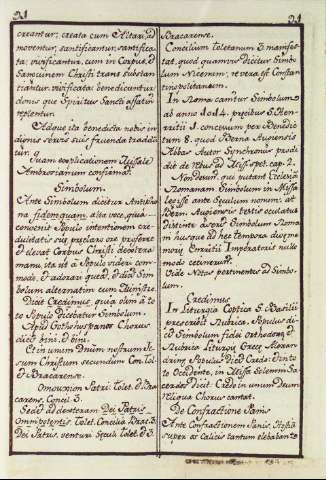 creantur; creata cum Altari, ad
moventur, santificantur, santifica-
ta; vivificantur, cum in Corpus, &
Sanguinem Christi trans substan
tiantur; vivificata; benedicuntur,
donis que Spiritus Sancti
replentur.
benedicta nobis in
servis suis
tur.
explicationem Missale
Ambrosianum confirma
Simbolum.
Ante Simbolum dicitur Antipho
na fidem quam, alta voce,
convenit Populo intentionem cre-
dulitatis
elevat Corpus Christi
manu, ita ut à Populo videri com-
mode, & adorari queat, & dicit Sim-
bolum alternatim cum Ministro.
Dicit Credimus quia olim à to
to Populo dicebatur Simbolum.
Apud Gothos Chorus
dicto bini, & bini.
Et in unum Dnum nostrum Je-
sum Christum secundum Con. tol.
& Bracarense.
Omousion Patri. Tolet. & Bra
carens. Concil. 3.
Sedet ad dexteram Dei Patris
Omnipotentis. Tolet. Concilia. Brac. 3.
Dei Patris. venturi Seculi. tolet. & 3.
Bracarense.
Concilium Toletanum 3. manifes-
tat, quod quamvis dicitur Simbo-
lum Nicenum; re vera est Constan
tinopolitanum.
In Roma cantur Simbolum
ab anno 1014. precibus S. Hen-
rici 1. concensum per Benedic
tum 8. quod Berna Augiensis
Abbas Autor Synchronus prodi
dit de rebus ad Miss. spet. cap. 2.
qui putant Ecclesia
Romanam Simbolum in Missa
legisse ante Seculum nonum; at
Bern. Augiensis testis oculatus
distinte Simbolum Roma
in hucusque ad hec tempora
mos, Enrici Imperatoris nullo
modo cecinerunt.
Vide Notas pertinentes ad Simbo-
lum.
Credimus
In Liturgia Coptica S. Basilii
prescribit Rubrica, Populus di-
cit Simbolum fidei orthodoxa, &
Rubrica Liturgia Greg. Alexan
drini Populus Dicet Credo: Dintto
te Occidente, in Missa Solemni Sa
cerdos Dicit Credo in unum Deum
Reliqua Chorus cantat.
De Confractione Panis
Ante Confractionem Panis Hostia
super os Calicis tantum elebabant